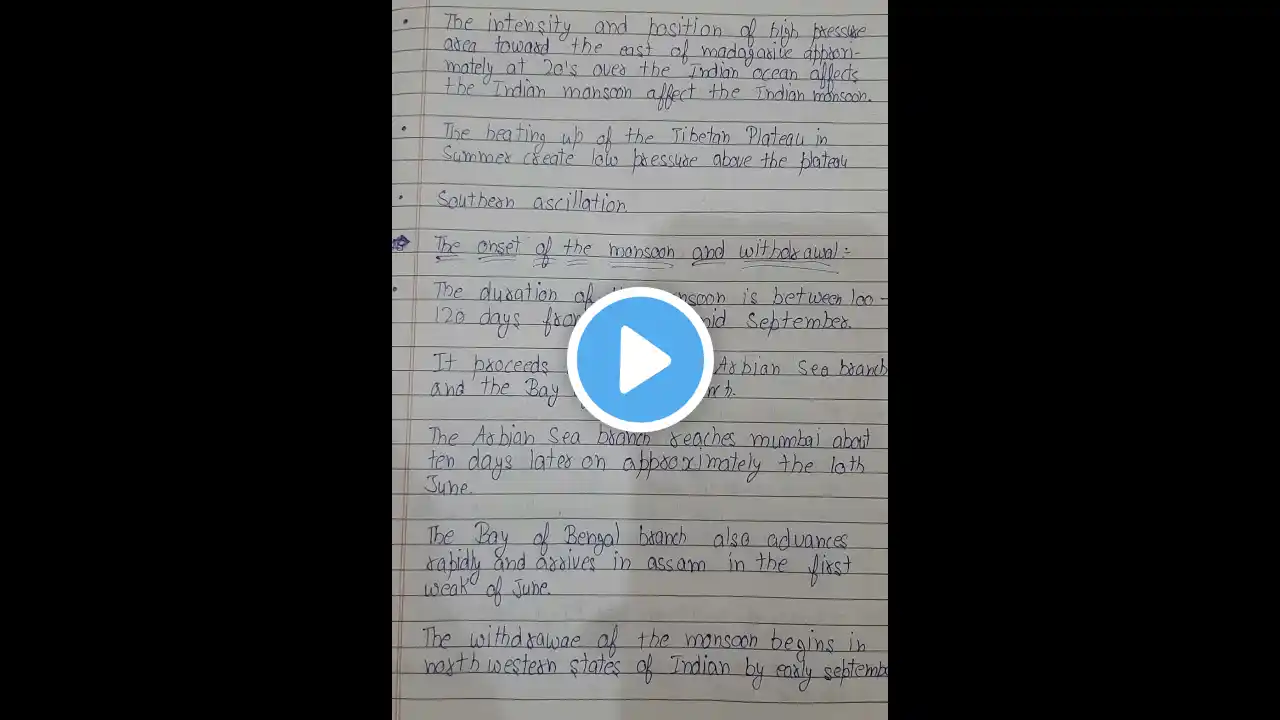 • The intensity and position of high pressure
area toward the east of madagasive approxi-
mately at 20's over the Indian ocean affects
the Indian monsoon affect the Indian monsoon.
• The heating up of the Tibetan Plateau in
Summer create low pressure above the plateau
• Southern ascillation.
The onset of the monsoon and withdrawal:-
• The duration of nsoon is between 100-
120 days from id September.
It proceeds Arbian Sea branch
and the Bay
The Arbian Sea branch reaches mumbai about
ten days later on approximately the 10th
June.
The Bay of Bengal branch also advances
rapidly and arrives in assam in the first
weak of June.
The withdrawae of the monsoon begins in
north western states of Indian by early septembe